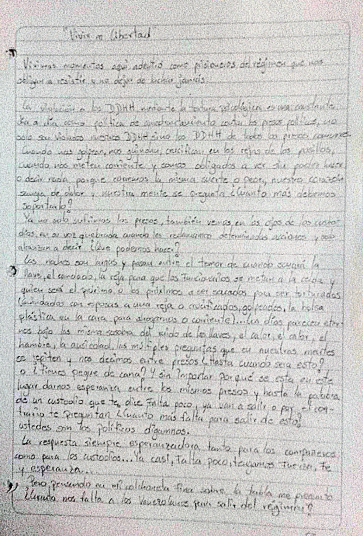 "Vivir en libertad"
Vivimos momentos aquí adentro como prisioneros del régimen que nos
obligan a resistir y no dejar de luchar jamás.
La violación a los DDHH, mediante la tortura psicológica es una constante
día a día como política de contra los presos políticos, no
solo son violados nuestro DDHH sino los DDHH de todos los presos comunes
cuando nos golpean, nos crucifican en las rejas de los pasillos,
cuando nos meten corriente y somos obligados a ver sin poder hacer
o decir nada porque corremos la misma suerte o peor, nuestro corazón
sangra de dolor y nuestra mente se pregunta ¿Cuánto más debemos
soportarlo?
Ya no solo sufrimos los presos, también vemos en los ojos de los custo-
dios, en su voz quebrada cuando les reclamamos determinadas acciones y solo
alcanzan a decir ¿Que podemos hacer?
Las noches son largas y pasan entre el temor de cuando sonará la
llave, el candado, la reja para que los funcionarios se metan a la celda y
quien será el próximo o los próximos a ser sacados para ser torturados
(amarrados con esposas a una reja o crucificados, golpeados, la bolsa
plástica en la cara para ahogarnos o corriente)... Los días parecen eter-
nos bajo la misma zozobra del ruido de las llaves, el calor, el olor, el
hambre, la suciedad, las múltiples preguntas que en nuestras mentes
se repiten y nos decimos entre presos ¿Hasta cuándo será esto?
o ¿Tienes pegue de cana? Y sin importar por qué se esta en este
lugar darnos esperanza entre los mismos presos y hasta la palabra
de un custodio que te dice falta poco, ya van a salir o por el con-
trario te preguntan ¿Cuánto más falta para salir de esto?
ustedes son los políticos digannos.
La respuesta siempre esperanzadora tanto para los compañeros
como para los custodios... Ya casi, falta poco, tengamos fuerza, fe
y esperanza...
Pero, pensando en mi colchoneta fina sobre la tabla me pregunto
¿Cuánto nos falta a los Venezolanos para salir del régimen?